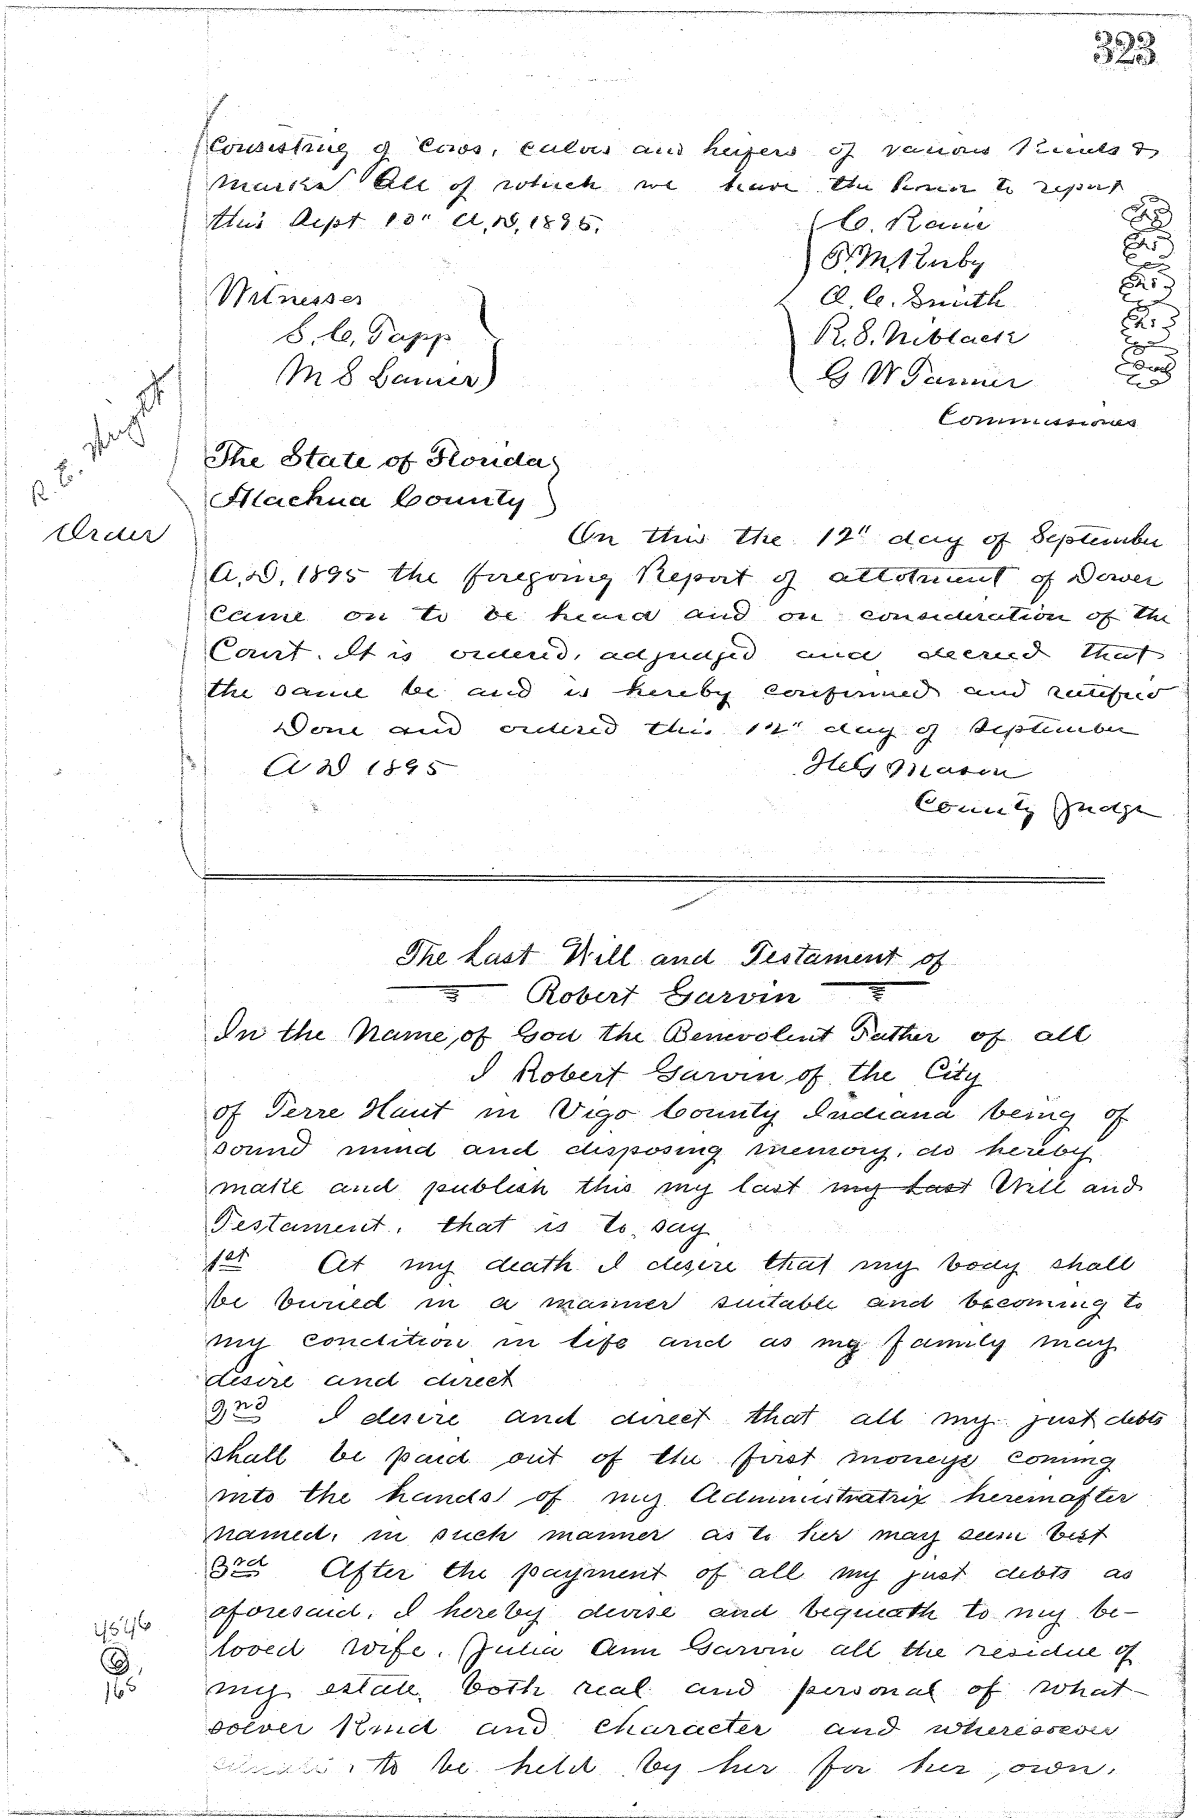 323
Consisting of Cows, calves and heifers of various Kinds &
marks All of which we have the honor to report
this Sept 10" A.D. 1895.
C. Rain
Witnesses
A. C. Smith
S. C. Tapp
R. S. Niblack
M S Lanier
G W Tanner
Commissioners
R. E. Wright
The State of Florida
Alachua County
Order
On this the 12" day of September
A.D. 1895 the foregoing Report of allotment of Dower
came on to be heard and on consideration of the
Court. It is ordered, adjudged and decreed that
the same be and is hereby confirmed and ratified
Done and ordered this 12" day of September
A D 1895
H G Mason
County Judge
The Last Will and Testament of
Robert Garvin
In the Name of God the Benevolent Father of all
I Robert Garvin of the City
of Terre Haut in Vigo County Indiana being of
sound mind and disposing memory, do hereby
make and publish this my last my last Will and
Testament, that is to say
1st At my death I desire that my body shall
be buried in a manner suitable and becoming to
my condition in life and as my family may
desire and direct
2nd I desire and direct that all my just debts
shall be paid out of the first moneys coming
into the hands of my Administratrix hereinafter
named, in such manner as to her may seem best
3rd After the payment of all my just debts as
aforesaid, I hereby devise and bequeath to my be-
loved wife, Julia Ann Garvin all the residue of
my estate, both real and personal of what-
soever Kind and character and wheresoever
to be held by her for her own,
4546
165